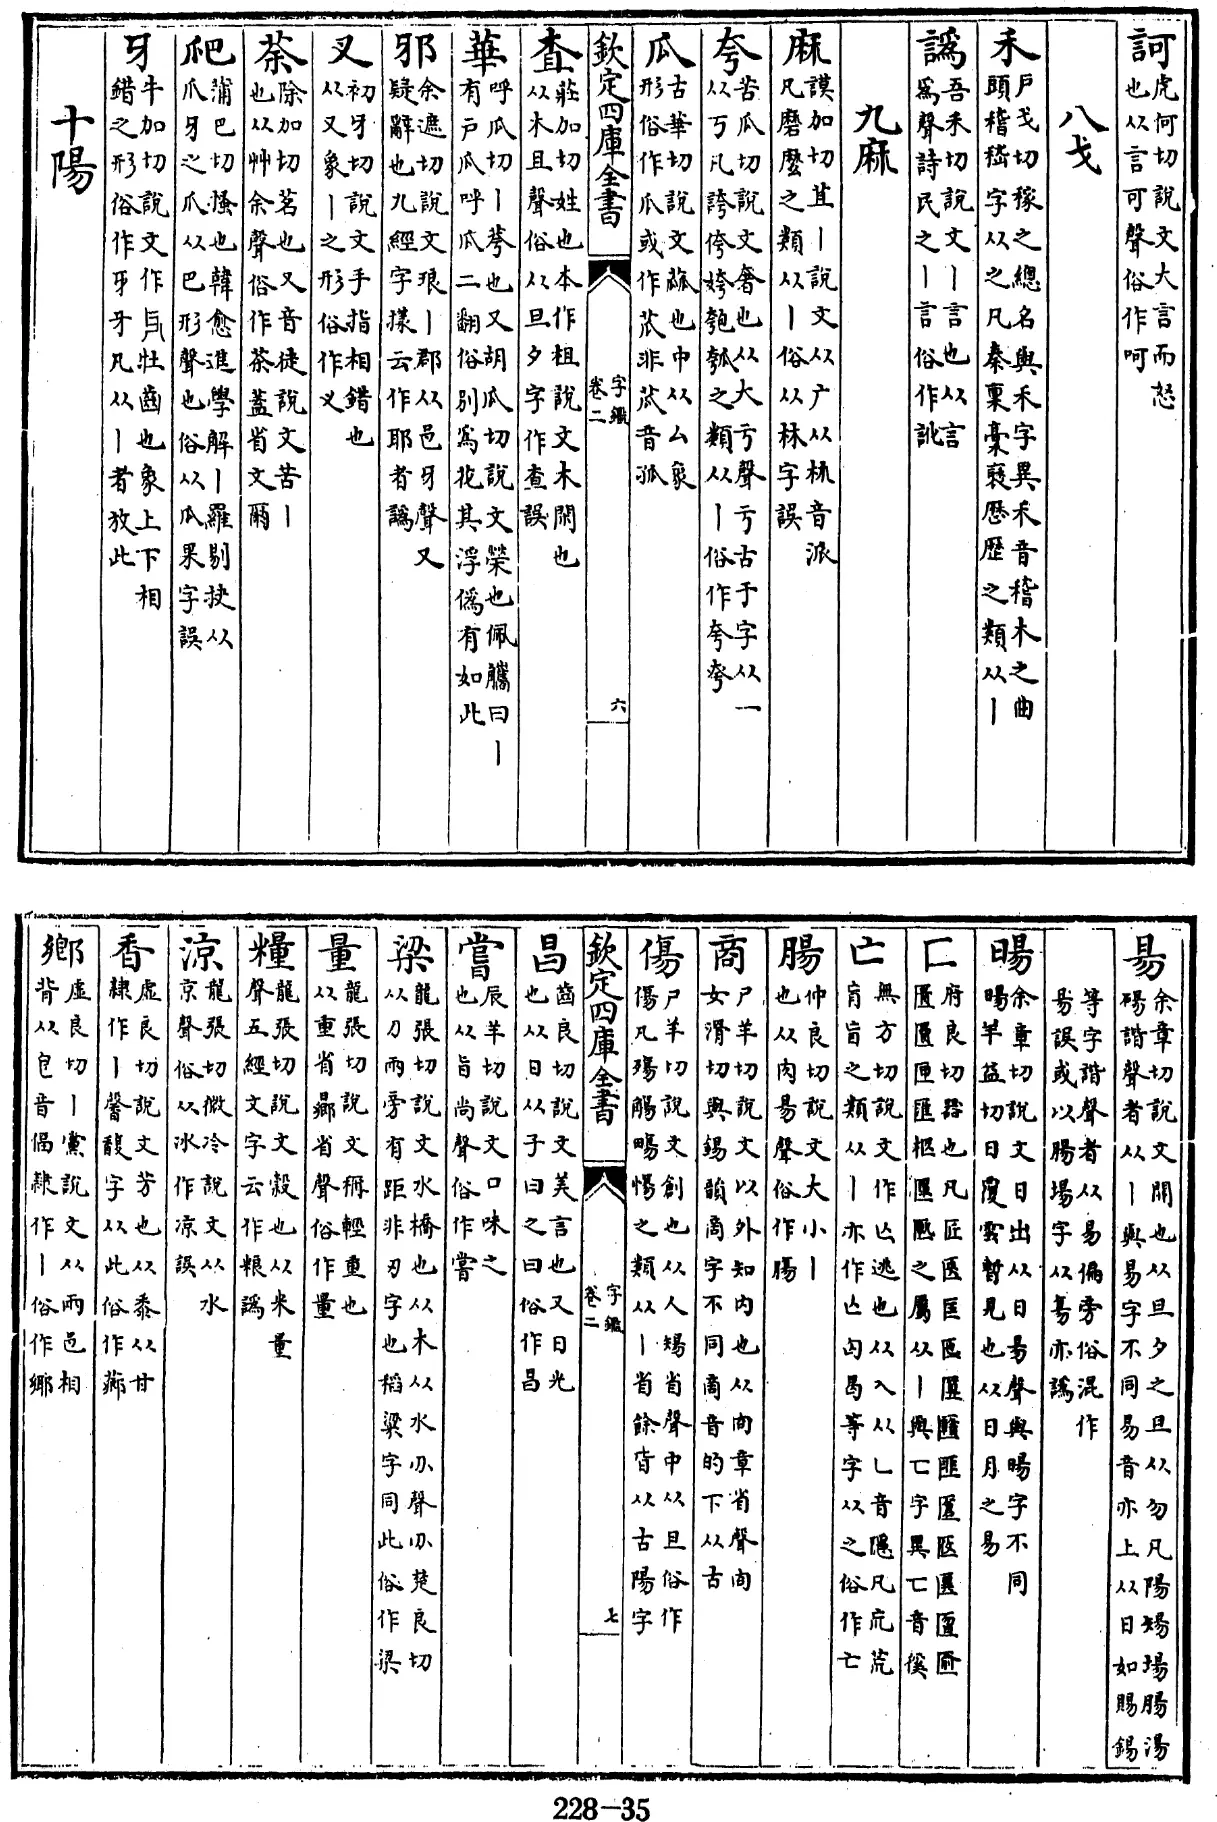 訶虎何切說文大言而怒也从言可聲俗作呵
八戈
禾戶戈切稼之總名與禾字異禾音稽木之曲頭稽嵇字从之凡秦稟稾蘃厯歷之類从丨
譌吾禾切說文丨言也从言爲聲詩民之丨言俗作訛
九麻
麻謨加切苴丨說文从广从𣏟音派凡磨麼之類从丨俗从林字誤
夸苦瓜切說文奢也从大亏聲亏古于字从一从丂凡誇侉姱匏瓠之類从丨俗作夸
瓜古華切說文蓏也中从厶象形俗作瓜或作苽非苽音孤
欽定四庫全書
字鑑
卷二
六
查莊加切姓也本作柤說文木閑也从木且聲俗从旦夕字作查誤
華呼瓜切丨荂也又胡瓜切說文榮也佩觿曰丨有戶瓜呼瓜二翻俗別爲花其浮僞有如此
邪余遮切說文琅丨郡从邑牙聲又疑辭也九經字㨾云作耶者譌
叉初牙切說文手指相錯也从又象丨之形俗作乂
荼除加切茗也又音徒說文苦丨也从艸余聲俗作茶蓋省文爾
爬蒲巴切搔也韓愈進學解丨羅剔抉从爪牙之爪从巴形聲也俗从瓜果字誤
牙牛加切說文作𤘈牡齒也象上下相錯之形俗作牙凡从丨者放此
十陽
昜余章切說文開也从旦夕之旦从勿凡陽煬場腸湯碭諧聲者从丨與易字不同易音亦上从日如賜錫
等字諧聲者从易偏旁俗混作昜誤或以腸場字从昜亦譌
暘余章切說文日出从日昜聲與晹字不同晹羊益切日覆雲暫見也从日月之易
匚府良切器也凡匠医匡匜匽匱匪匼匧匿匳匬匵匱匣匯柩匯匫之屬从丨與匸字異匸音徯
亡無方切說文作亾逃也从入从乚音隱凡㡆荒肓盲之類从丨亦作亾匃曷等字从之俗作亡
腸仲良切說文大小丨也从肉昜聲俗作膓
商尸羊切說文以外知內也从㕯章省聲㕯女滑切與錫韻啇字不同啇音的下从古
傷尸羊切說文創也从人煬省聲中从旦俗作傷凡殤觴暢惕之類从丨省餘皆从古陽字
欽定四庫全書
字鑑
卷二
七
昌齒良切說文美言也又日光也从日从子曰之曰俗作昌
嘗辰羊切說文口味之也从旨尚聲俗作甞
梁龍張切說文水橋也从木从水刅聲刅楚良切从刀兩旁有距非刃字也稻粱字同此俗作梁
量龍張切說文稱輕重也从重省曏省聲俗作量
糧龍張切說文穀也从米量聲五經文字云作粮譌
涼龍張切微冷說文从水京聲俗从冰作凉誤
香虛良切說文芳也从黍从甘隸作丨馨馥字从此俗作薌
鄉虛良切丨黨說文从兩邑相背从皀音偪隸作丨俗作鄉
228-35